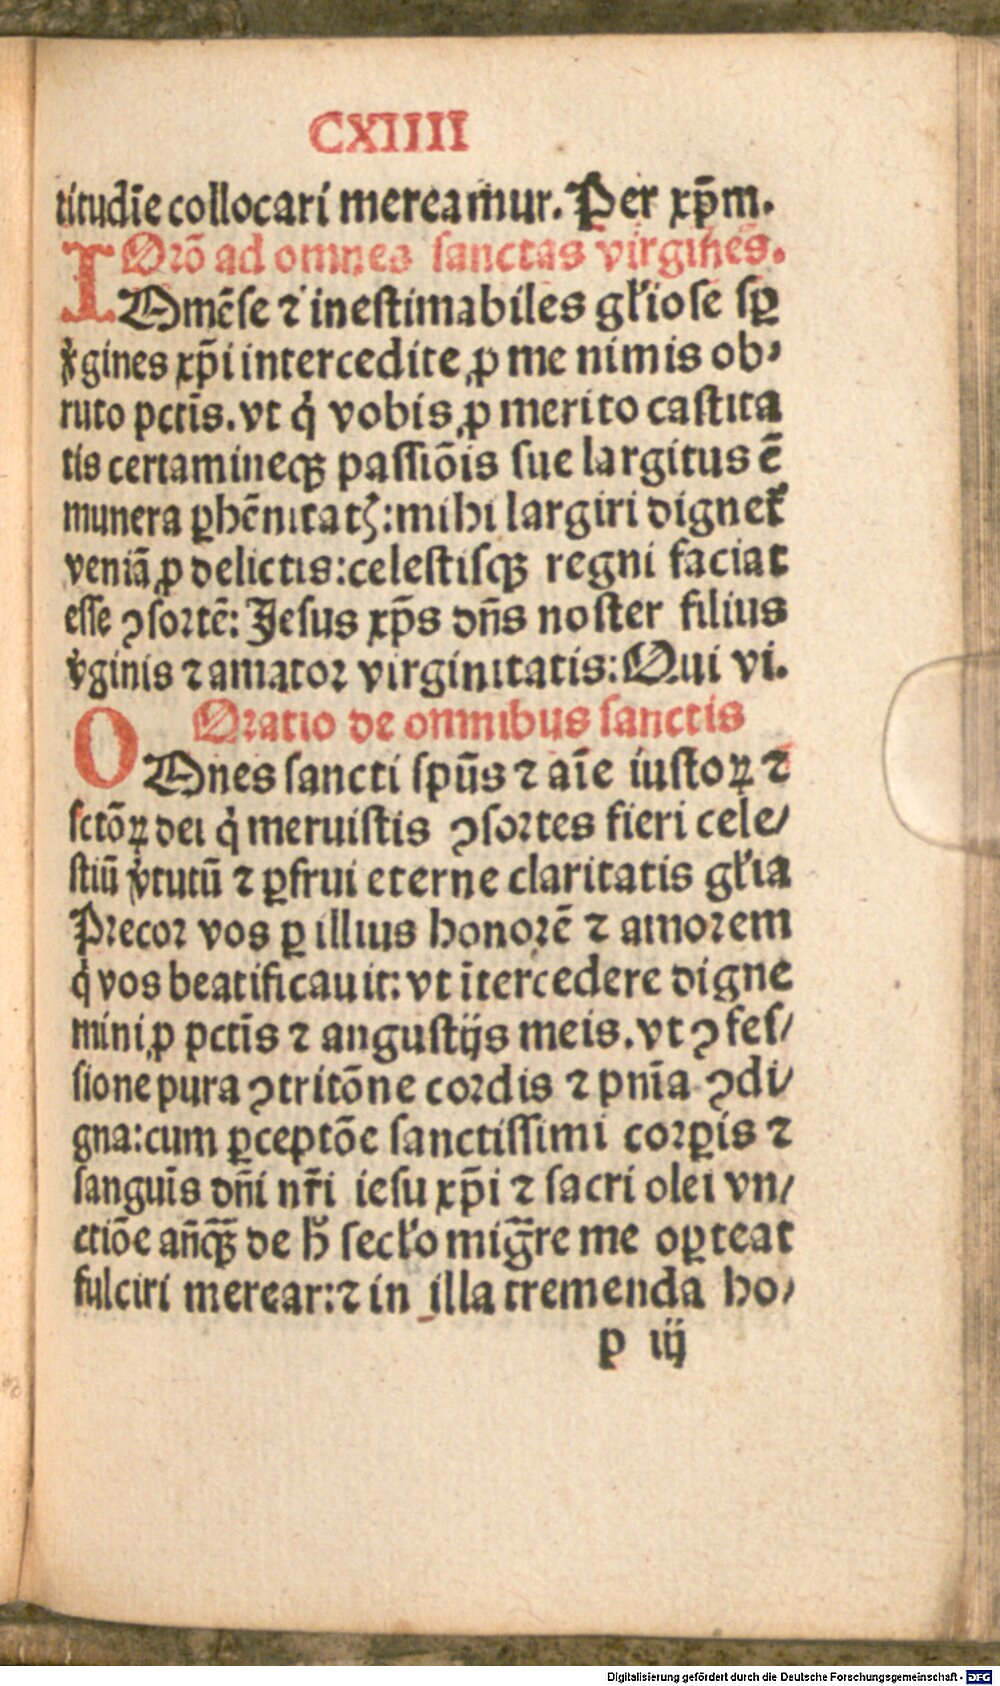 CXIIII
titudīe collocari mereamur. Per xp̄m.
Orō ad omnes sanctas virgines.
IMmēse ⁊ inestimabiles gl'iose sꝑ
v̓gines xp̄i intercedite ꝓ me nimis ob⸗
ruto pctīs. vt q̇ vobis ꝓ merito castita
tis certamineqꝫ passiōis sue largitus ē
munera ꝑhēnitatꝫ: mihi largiri dignet᷑
veniā ꝓ delictis: celestisqꝫ regni faciat
esse ꝯsortē: Jesus xp̄s dn̄s noster filius
v̓ginis ⁊ amator virginitatis: Qui vi.
Oratio de omnibus sanctis
OMnes sancti sp̄us ⁊ aīe iustoꝝ ⁊
sctōꝝ dei q̇ meruistis ꝯsortes fieri cele/
stiū v̓tutū ⁊ ꝑfrui eterne claritatis gl'ia
Precor vos ꝑ illius honorē ⁊ amorem
q̇ vos beatificauit: vt ītercedere digne
mini ꝓ pctīs ⁊ angustijs meis. vt ꝯfes/
sione pura ꝯtritōne cordis ⁊ pnīa ꝯdi/
gna: cum ꝑceptōe sanctissimi corꝑis ⁊
sanguīs dn̄i nr̄i iesu xp̄i ⁊ sacri olei vn/
ctiōe an̄qꝫ̄ de h̓ secl'o mig̅re me oꝑteat
fulciri merear: ⁊ in illa tremenda ho/
p iij
Digitalisierung gefördert durch die Deutsche Forschungsgemeinschaft - DFG